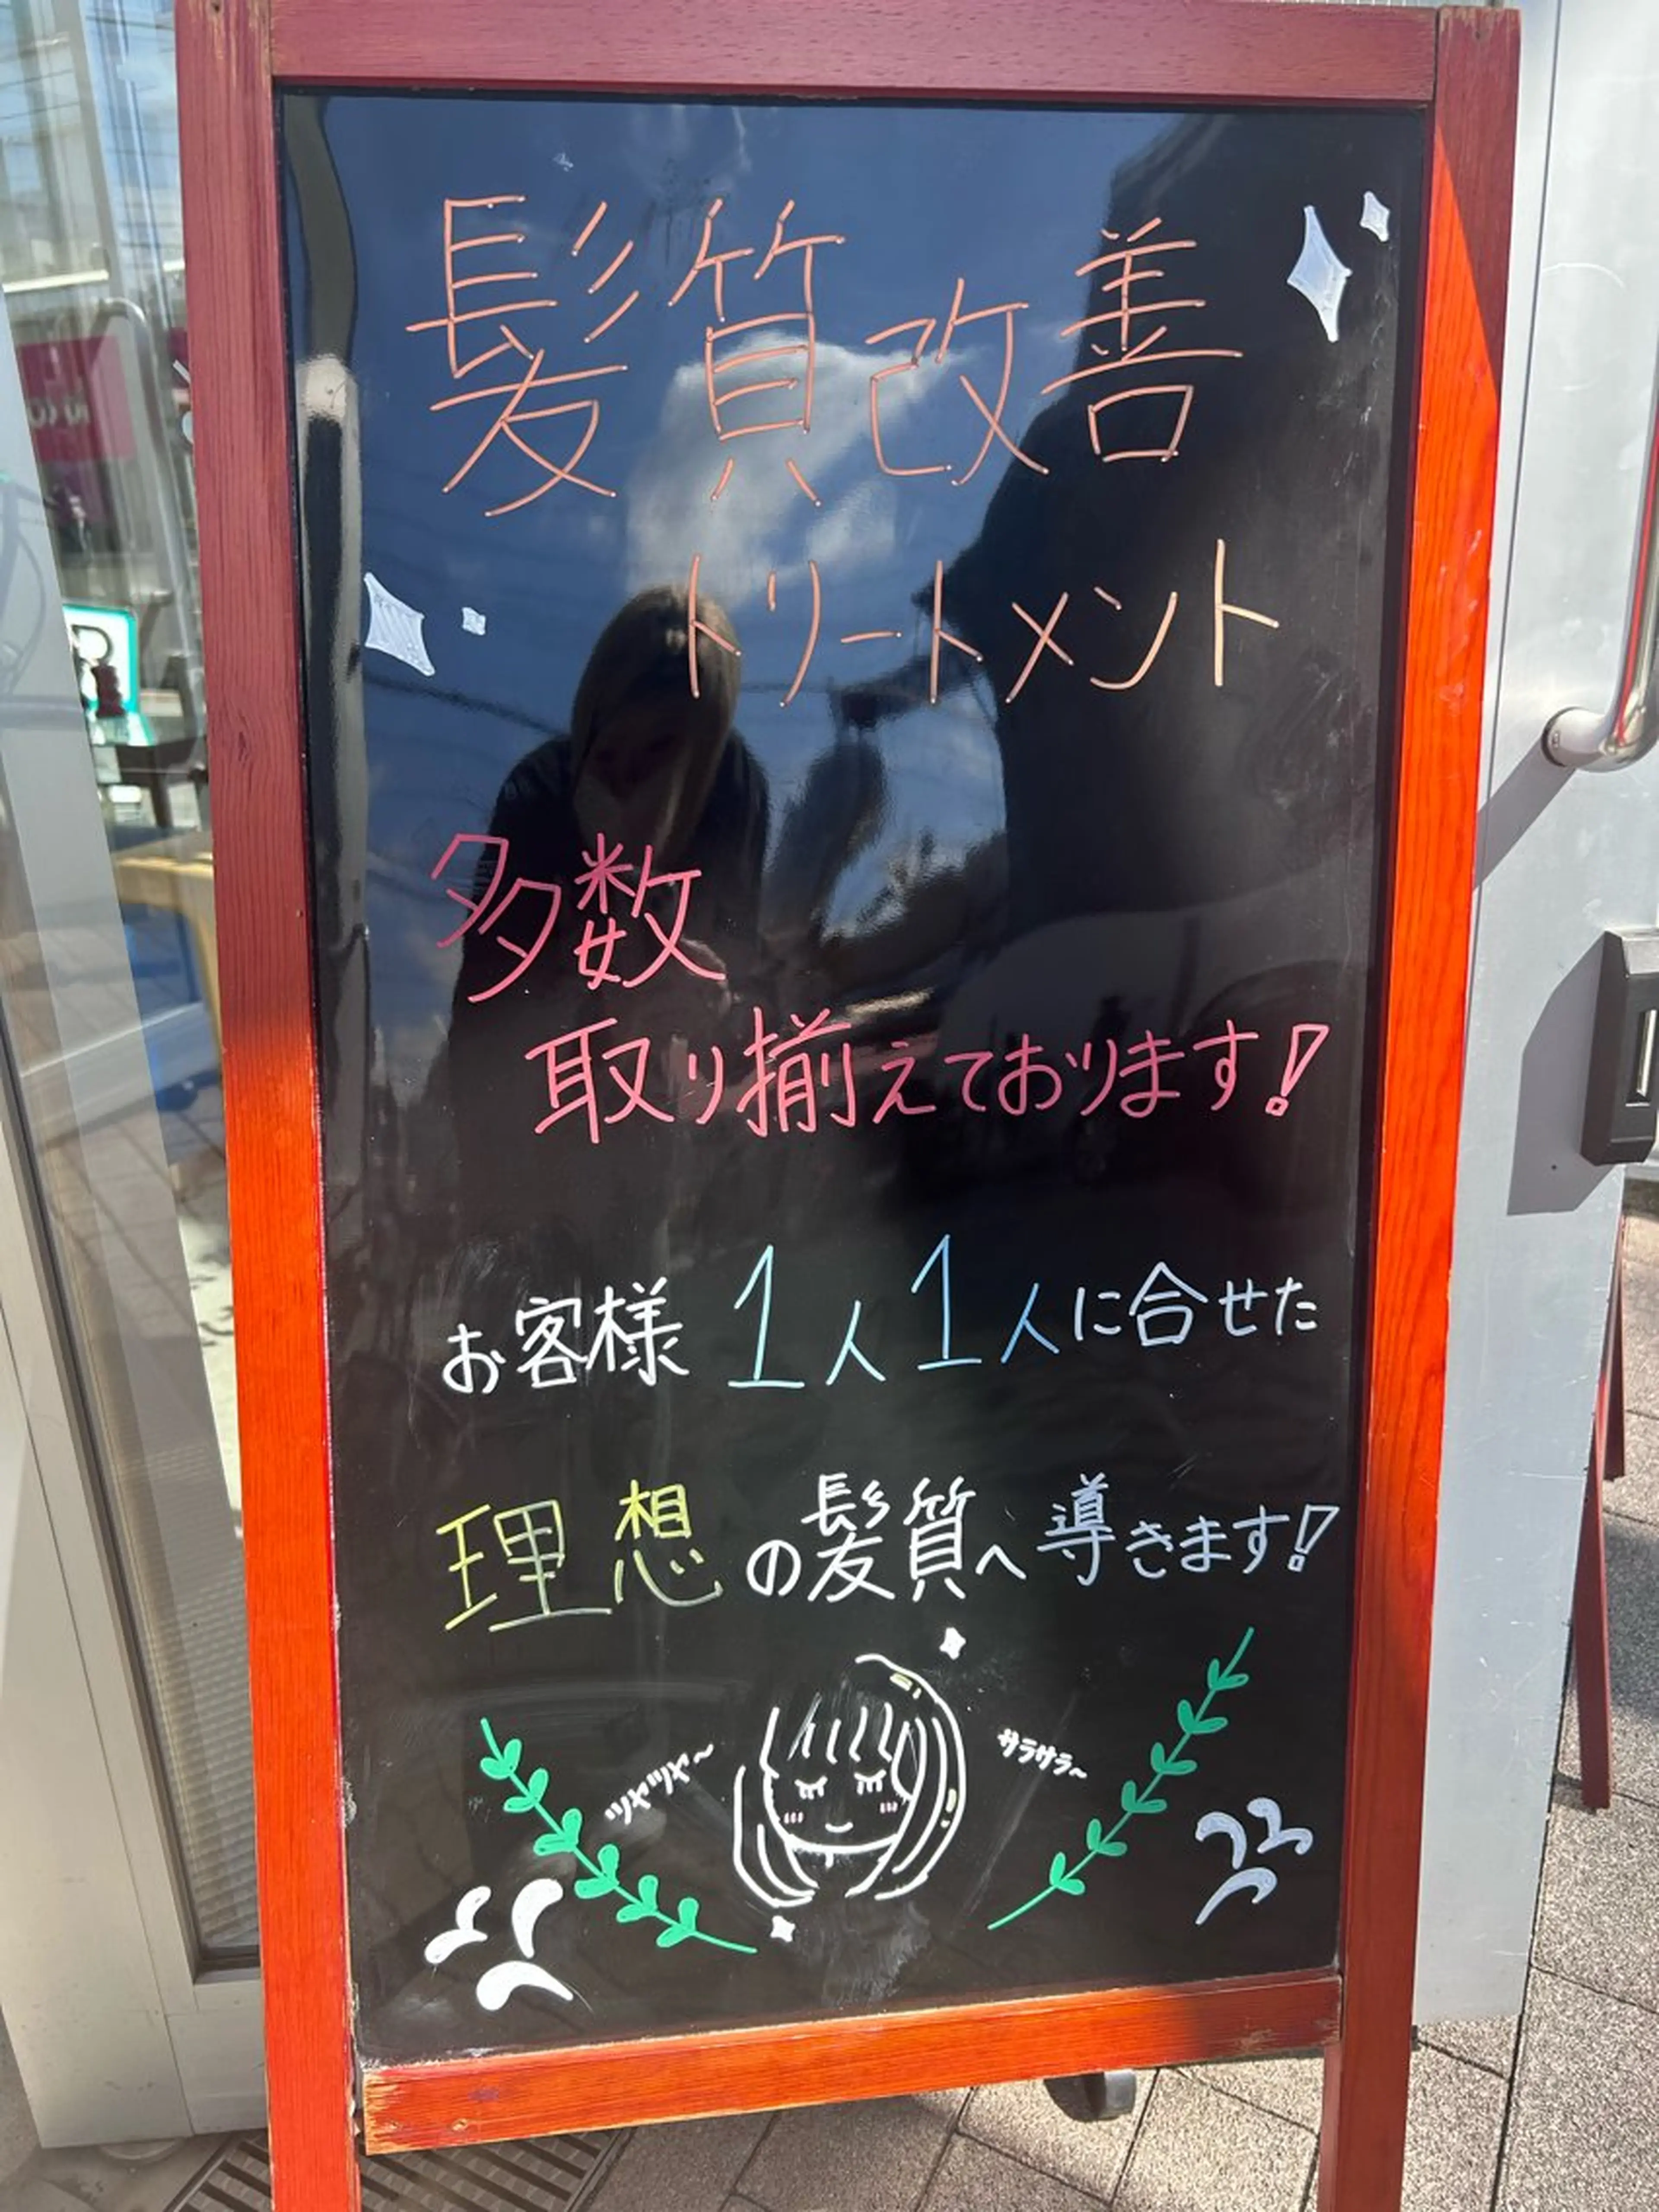 髪質改善
トリートメント
多数
取り揃えております!
お客様 1人1人に合せた
理想の髪質へ導きます!
サラサラ~